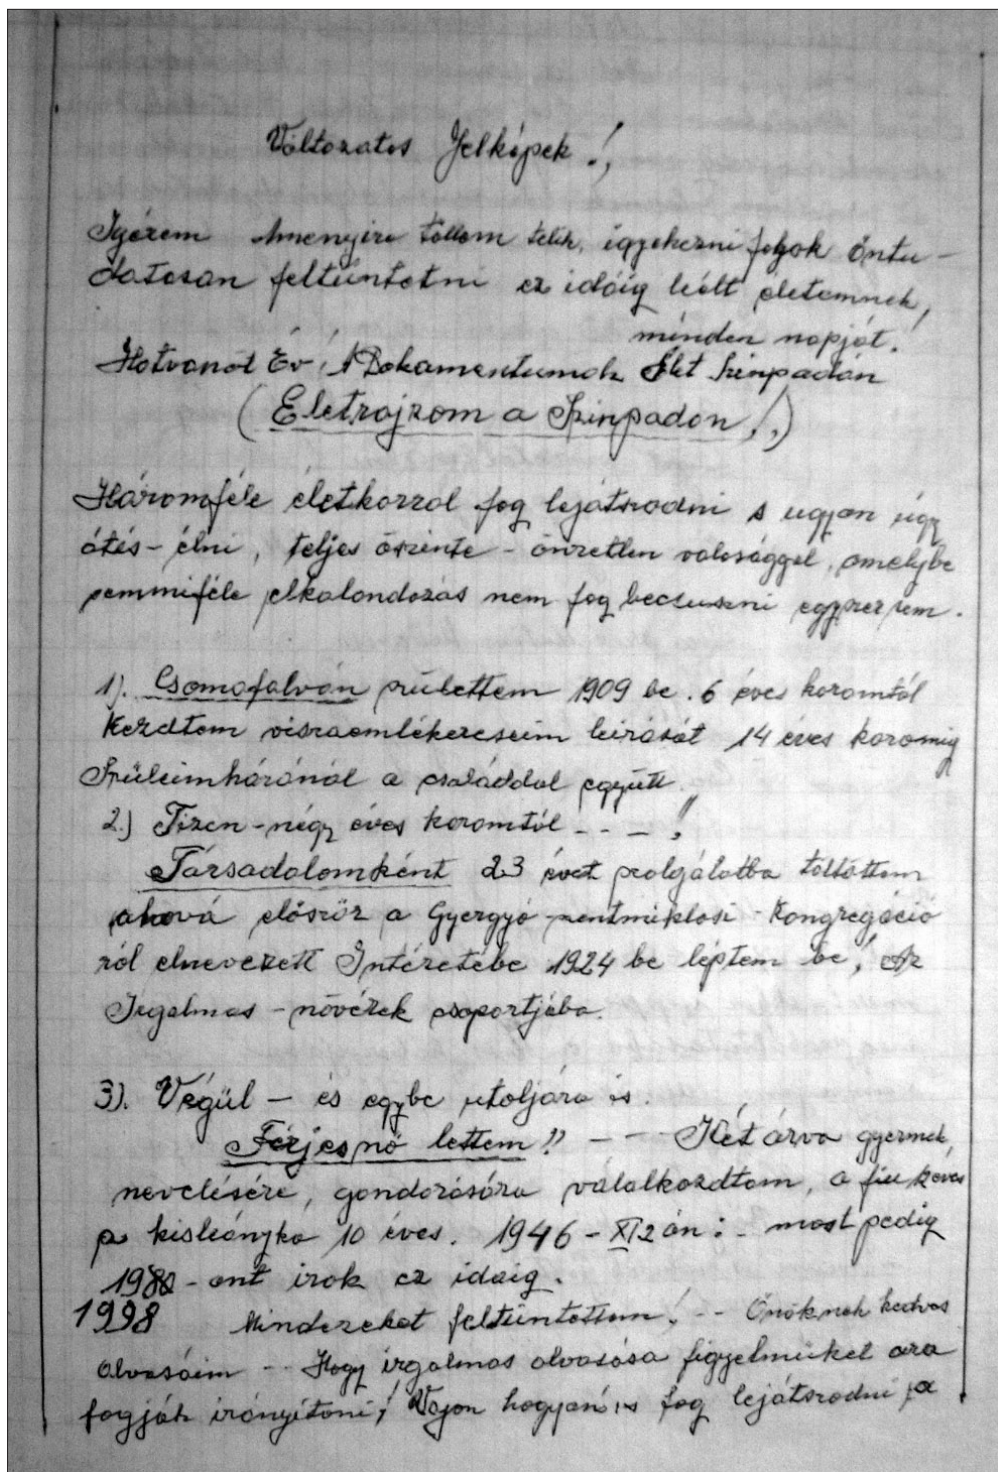 Változatos Jelképek!,
Igérem Amenyire töllem telik, igyekezni fogok öntu-
datosan feltüntetni ez idáig leélt életemnek,
minden napját!
Hatvanöt Év! A Dokamentumok Élet Szinpadán
(Életrajzom a Szinpadon!,)
Háromféle életkorral fog lejátszodni s ugyan úgy
átés-élni, teljes öszinte-önzetlen valosággal, amelybe
semmiféle elkalandozás nem fog becsuszni egyszersem.
1). Csomafalván születtem 1909 be. 6 éves koromtól
Kezdtem viszaemlékezéseim leirását 14 éves koromig
Szüleimházánál a családdal együtt.
2.) Tizen-négy éves koromtól - - - !
Társadalomként 23 évet szolgálatba töltöttem
ahová elöször a Gyergyó-szentmiklosi-Kongregáció
ról elnevezett Intézetébe 1924 be léptem be! Az
Irgalmas-növérek csoportjába.
3). Végül - és egybe utoljára is.
Férjesnö lettem!! - - - Két árva gyermek
nevelésére, gondozására válalkozdtam, a fiu éves
a kisleányka 10 éves. 1946-XI 2 án: - most pedig
1980-ant irok ez idáig.
1998 Mindezeket feltüntettem! - - Önöknek kedves
olvasóim - - Hogy irgalmas olvasása figyelmüket ara
fogják irányítani! Vajon hogyan is fog lejátszodni a